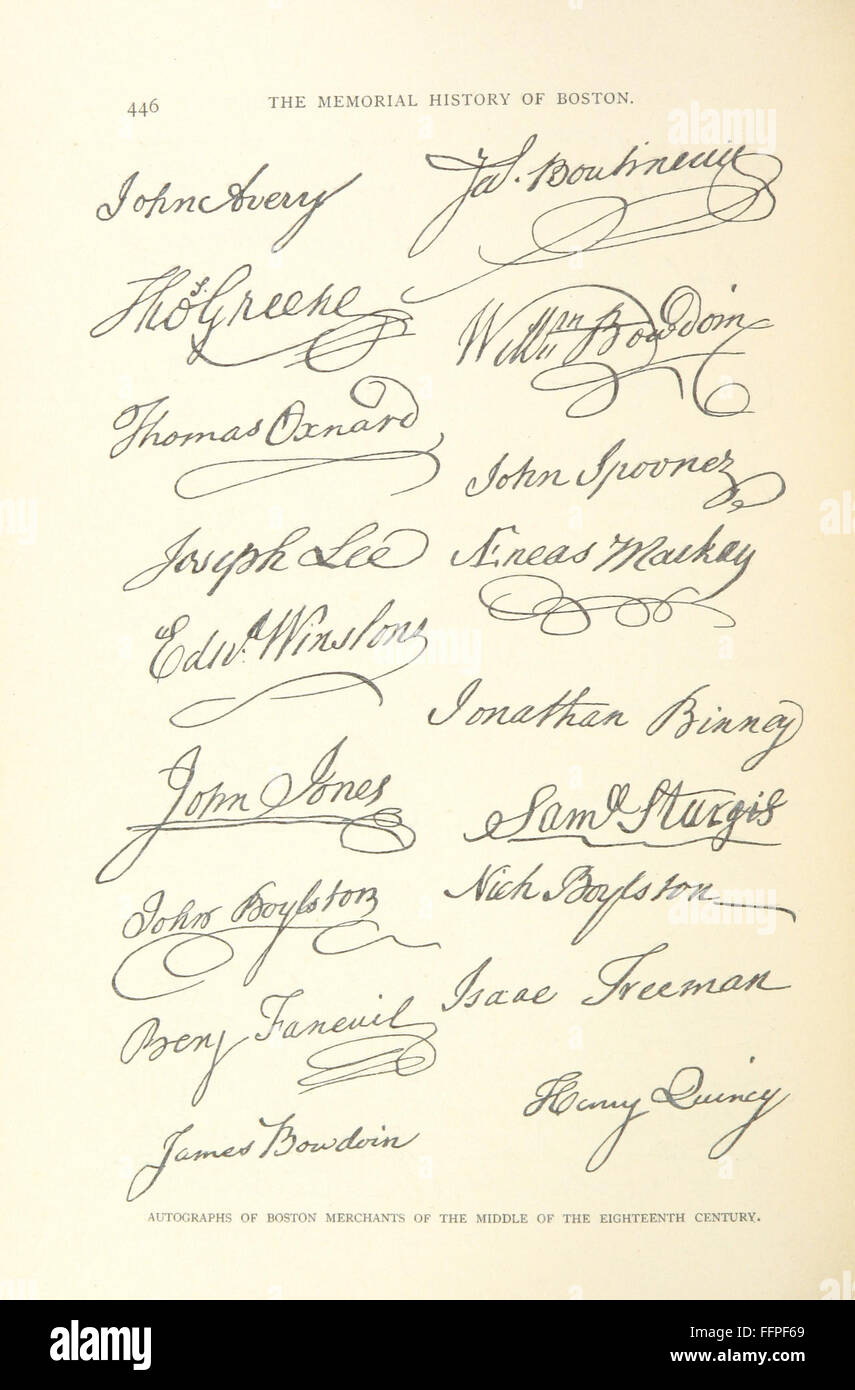 446 THE MEMORIAL HISTORY OF BOSTON.
John Avery
Jas. Boutineau
Thos. Greene
Willm Bowdoin
Thomas Oxnard
John Spooner
Joseph Lee
Æneas Mackay
Edwd. Winslow
Jonathan Binney
John Jones
Saml Sturgis
John Boylston
Nich Boylston
Benj Faneuil
Isaac Freeman
Henry Quincy
James Bowdoin
AUTOGRAPHS OF BOSTON MERCHANTS OF THE MIDDLE OF THE EIGHTEENTH CENTURY.
alamy
alamy stock photo
FFPF69
www.alamy.com